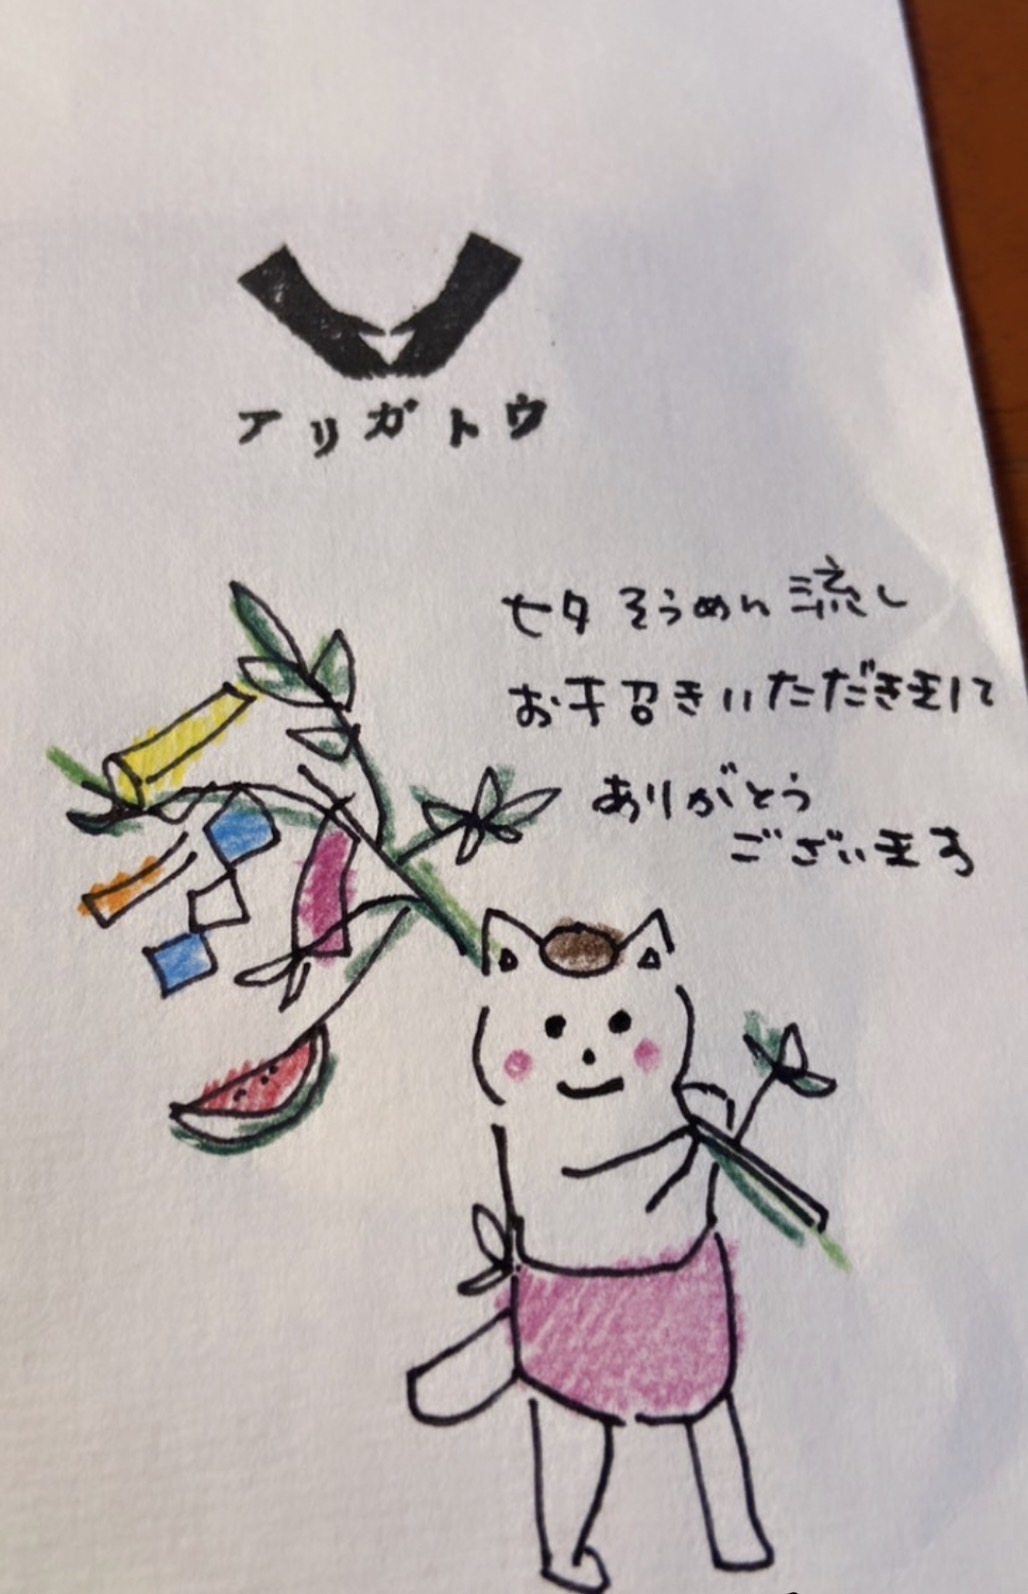 アリガトウ
七夕 そうめん流し
お手招きいただきまして
ありがとう
ございます